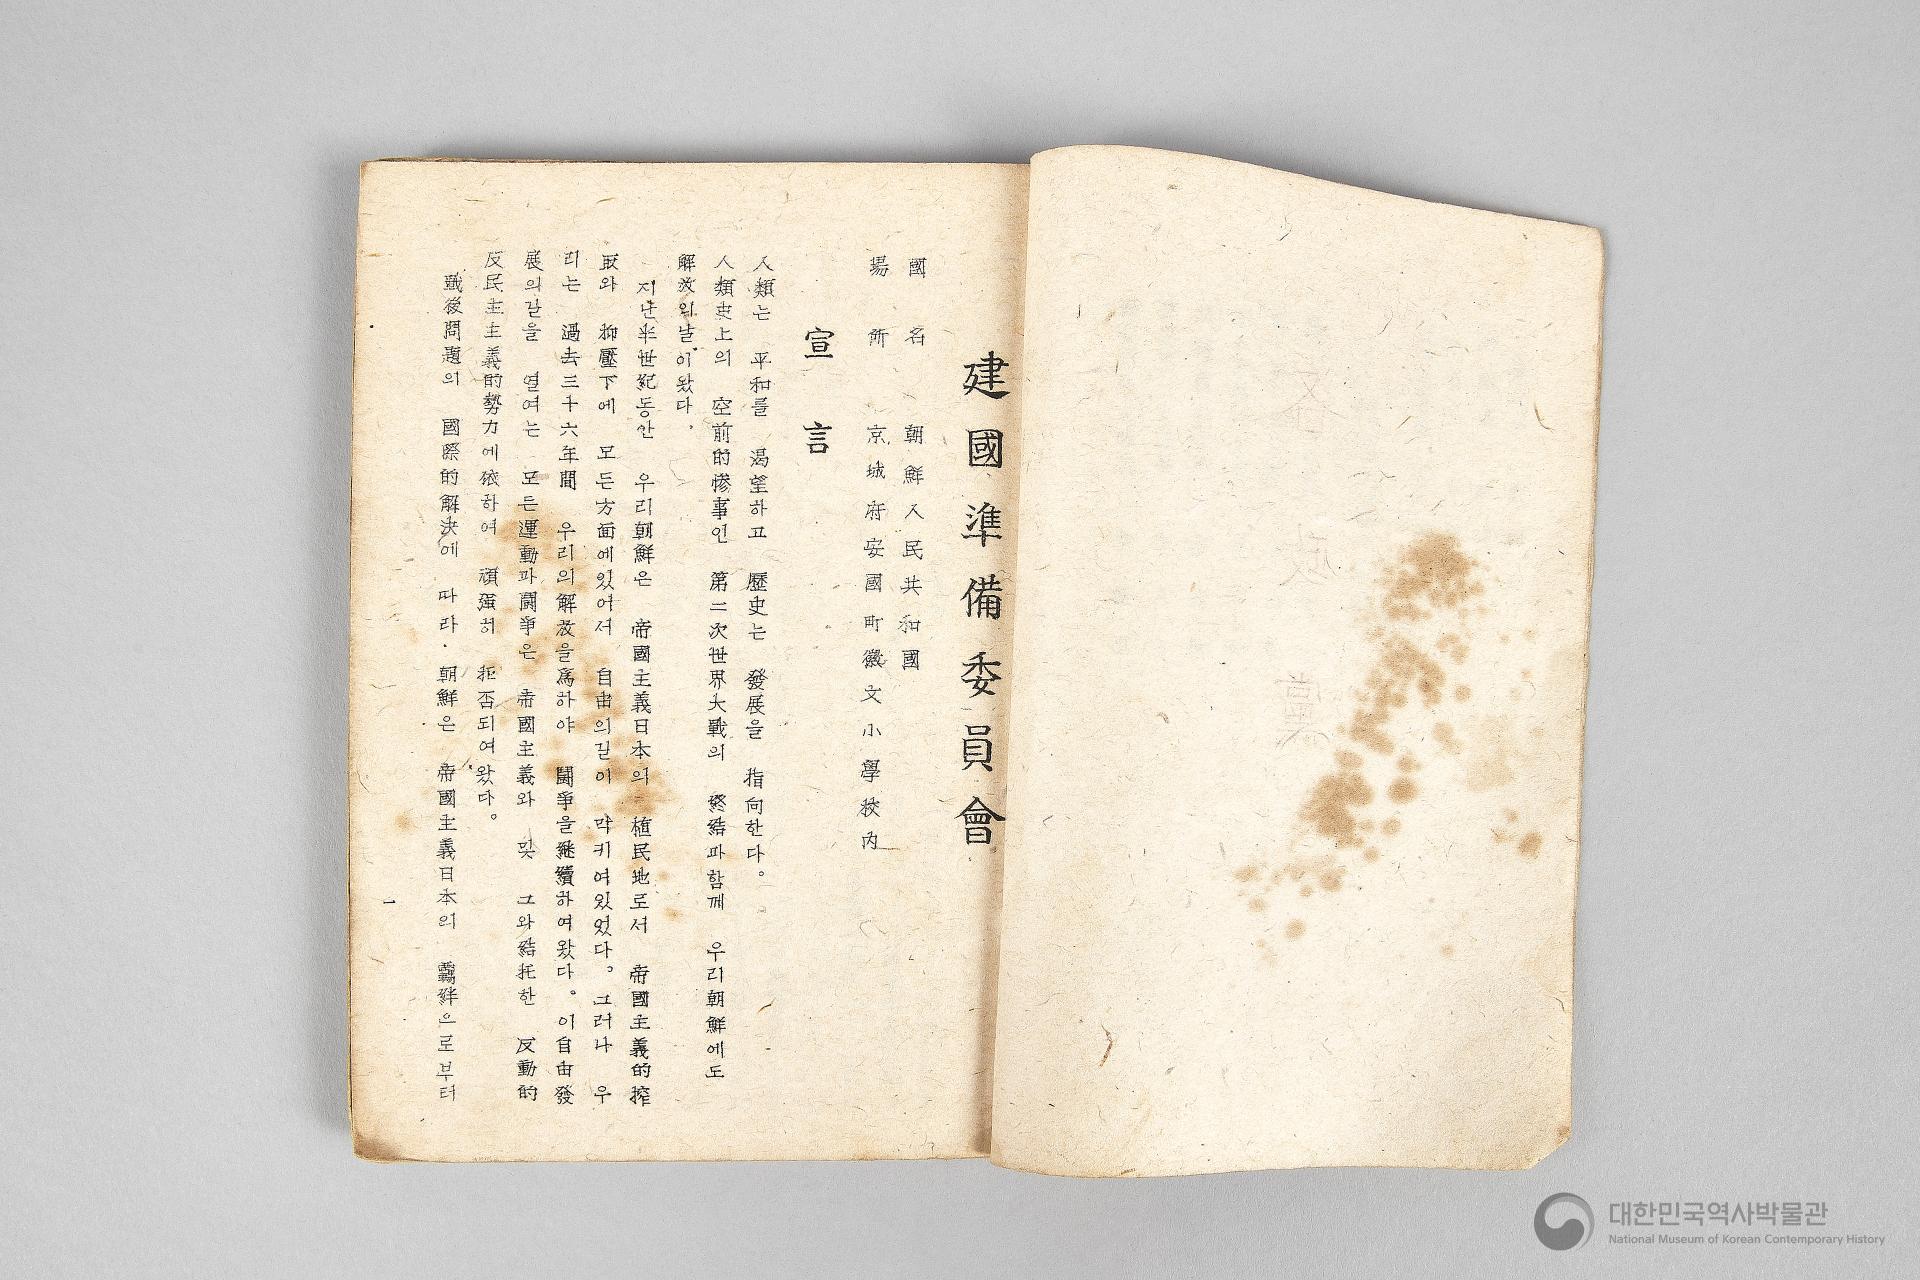 建國準備委員會
國名 朝鮮人民共和國
場所 京城府安國町徽文小學校內
宣言
人類는 平和를 渴望하고 歷史는 發展을 指向한다。
人類史上의 空前的慘事인 第二次世界大戰의 終結과함께 우리朝鮮에도
解放의날이왔다.
지난半世紀동안 우리朝鮮은 帝國主義日本의 植民地로서 帝國主義的搾
取와 抑壓下에 모든方面에있어서 自由의길이 막키여있었다。그러나 우
리는 過去三十六年間 우리의解放을爲하야 鬪爭을継續하여왔다。이自由發
展의길을 열여는 모든運動과鬪爭은 帝國主義와 및 그와結托한 反動的
反民主主義的勢力에依하여 頑强히 拒否되여왔다。
戰後問題의 國際的解決에 따라. 朝鮮은 帝國主義日本의 羈絆으로부터
一
대한민국역사박물관
National Museum of Korean Contemporary History